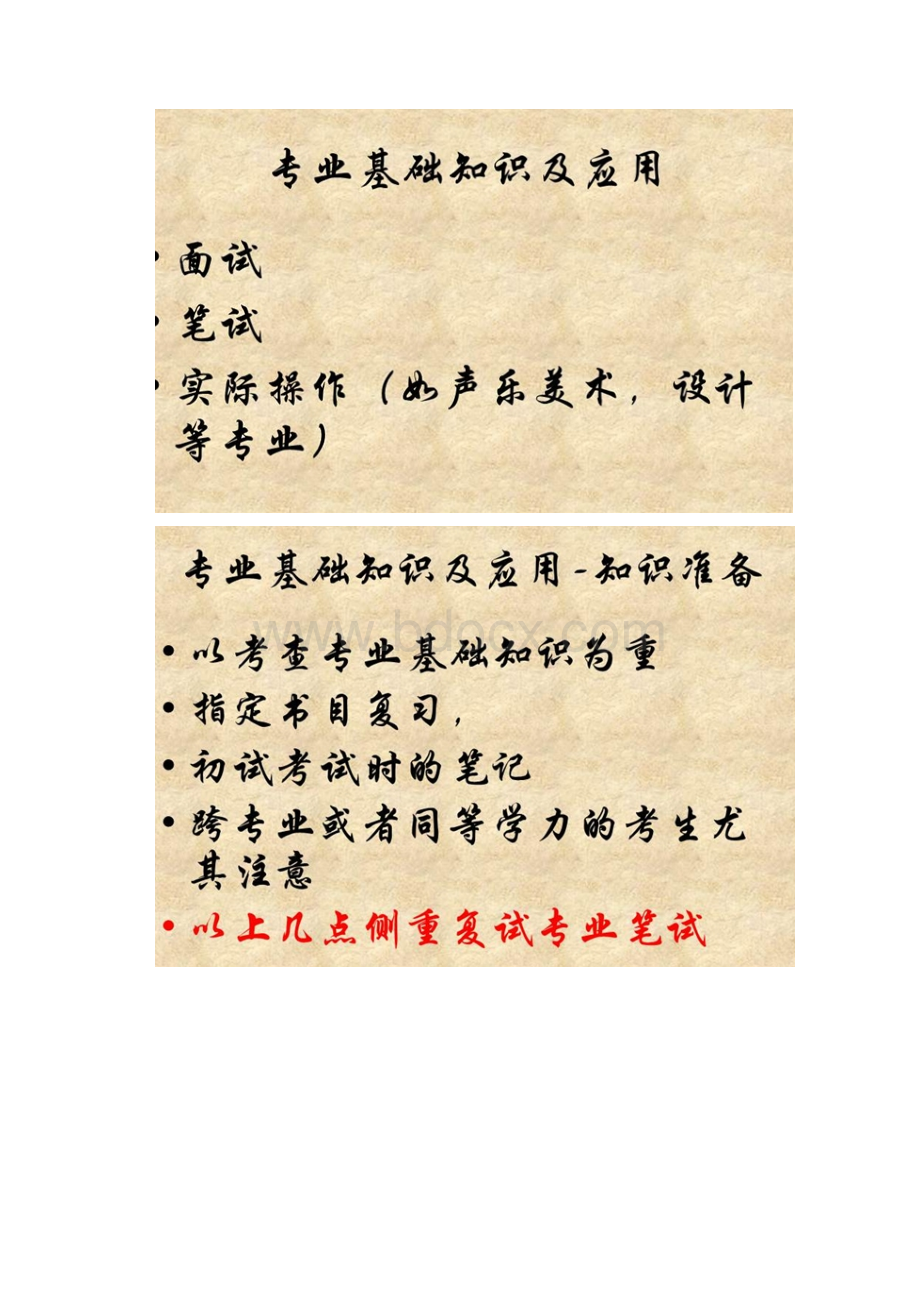 专业基础知识及应用
• 面试
• 笔试
• 实际操作（如声乐美术，设计
等专业）
专业基础知识及应用-知识准备
www.bdocx.com
• 以考查专业基础知识为重
• 指定书目复习，
• 初试考试时的笔记
• 跨专业或者同等学力的考生尤
其注意
• 以上几点侧重复试专业笔试